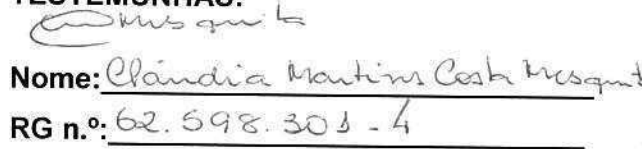 TESTEMUNHAS:
Mesquita
Nome: Cláudia Martins Costa Mesquit
RG n.º: 62.598.301-4